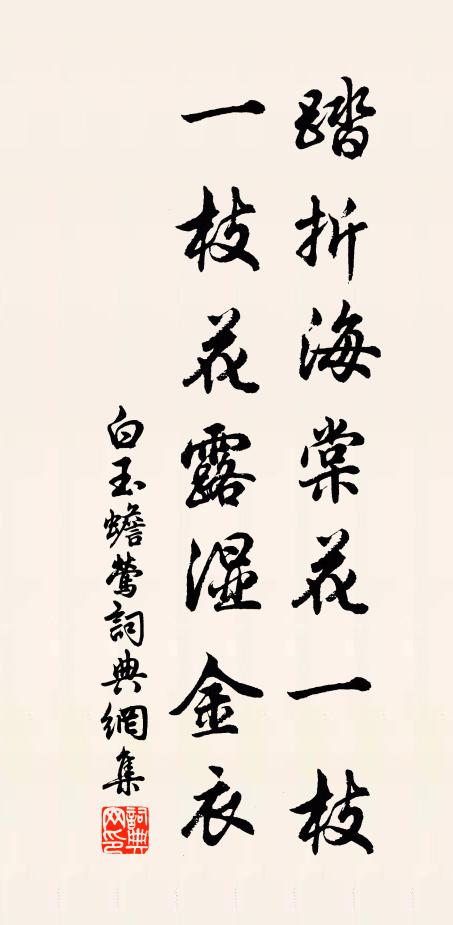 踏折海棠花一枝
一枝花露湿金衣
白玉蟾莺詞典網集
詞典网印